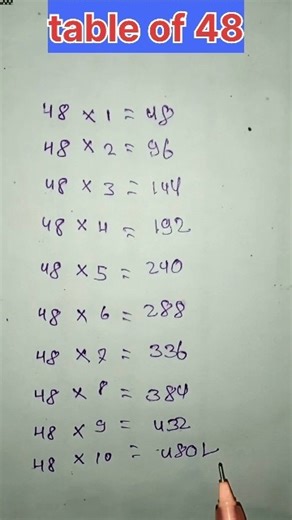 table of 48
48 × 1 = 48
48 × 2 = 96
48 × 3 = 144
48 × 4 = 192
48 × 5 = 240
48 × 6 = 288
48 × 7 = 336
48 × 8 = 384
48 × 9 = 432
48 × 10 = 480